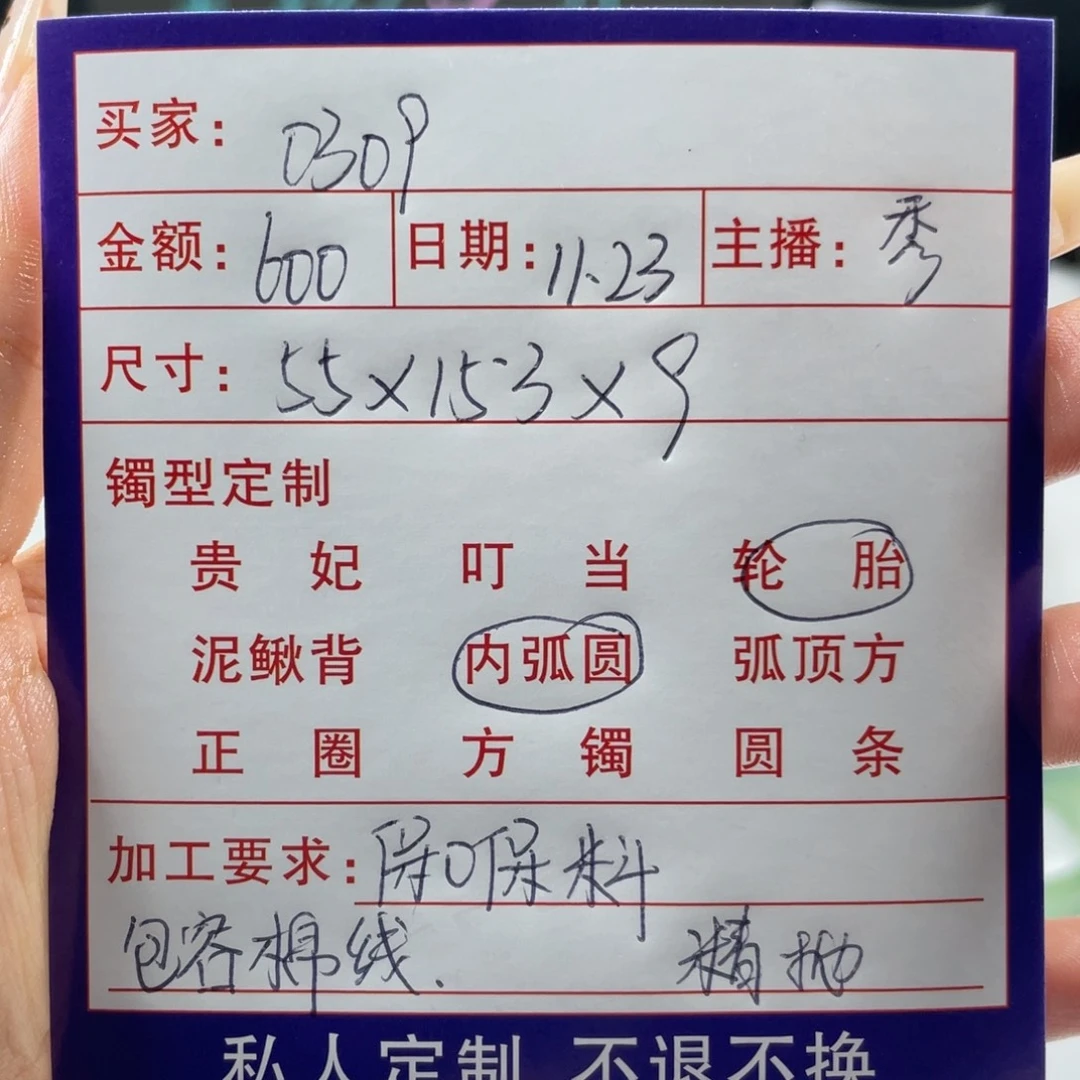 买家: 0309
金额: 600 日期: 11.23 主播: 秀
尺寸: 55×15.3×9
镯型定制
贵妃 叮当 轮胎
泥鳅背 内弧圆 弧顶方
正圈 方镯 圆条
加工要求: 保口保料
包容棉线. 精抛
私人定制 不退不换